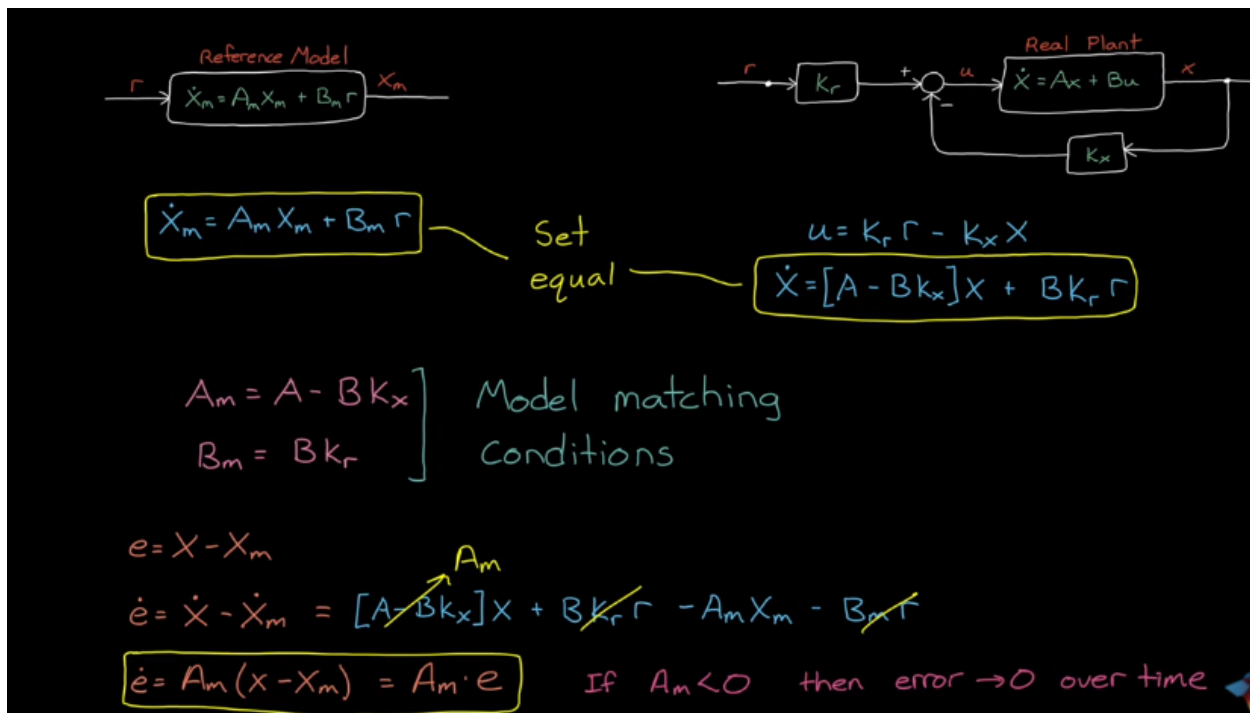 Reference Model
r ẋₘ = AₘXₘ + Bₘ r Xₘ
Real Plant
r Kᵣ + − u ẋ = Ax + Bu x
Kₓ
ẋₘ = AₘXₘ + Bₘ r
Set
equal
u = Kᵣ r − Kₓ X
ẋ = [A − BKₓ]X + BKᵣ r
Aₘ = A − BKₓ
Bₘ = BKᵣ
Model matching
Conditions
e = X − Xₘ
Aₘ
ė = ẋ − ẋₘ = [A − BKₓ]X + BKᵣ r − AₘXₘ − Bₘ r
ė = Aₘ(x − Xₘ) = Aₘ · e
If Aₘ < 0 then error → 0 over time